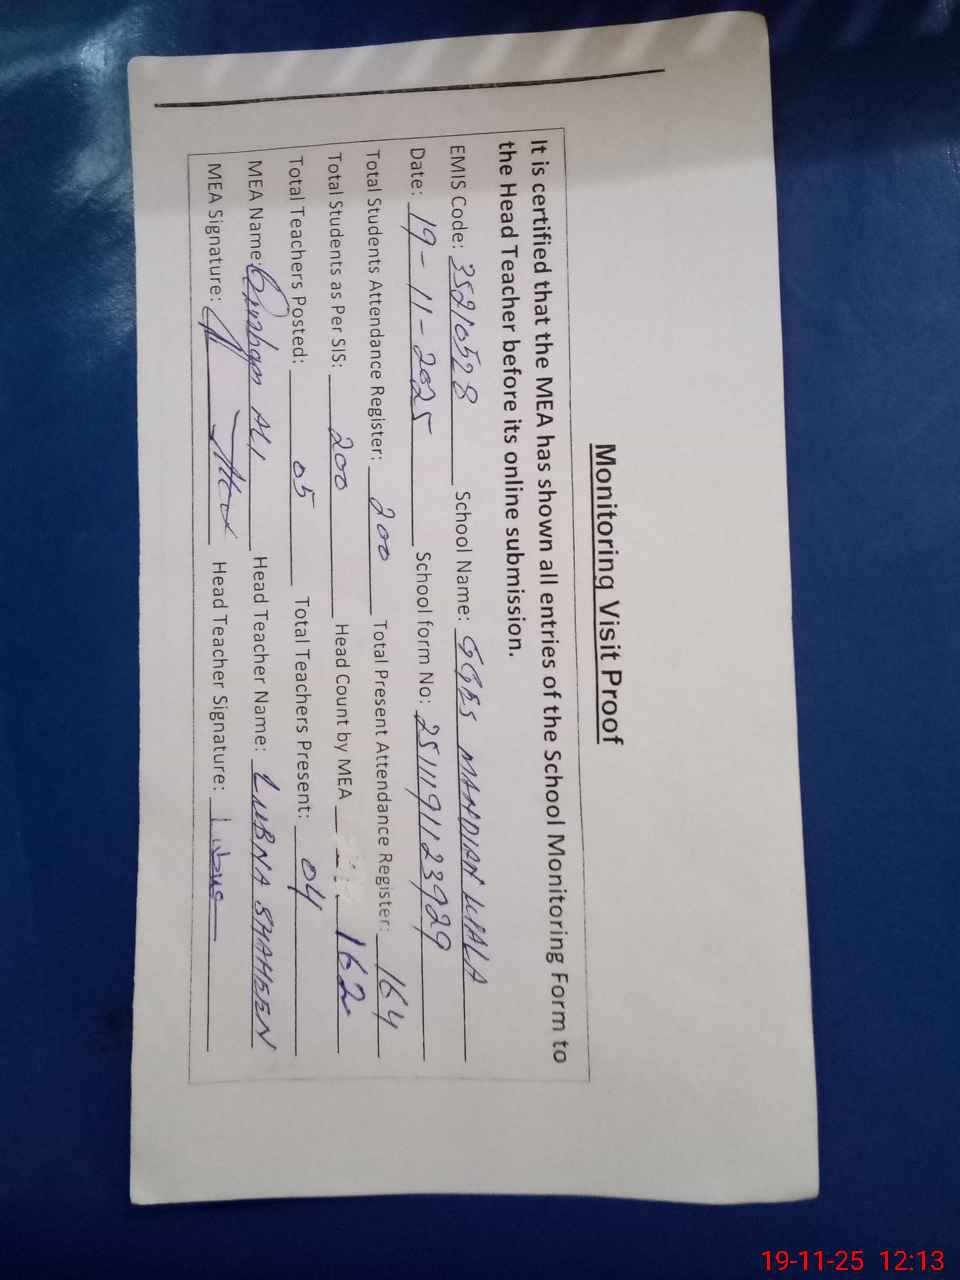 Monitoring Visit Proof
It is certified that the MEA has shown all entries of the School Monitoring Form to
the Head Teacher before its online submission.
EMIS Code: 35210528 School Name: GGES MANDIAN WALA
Date: 19-11-2025 School form No: 2511191123929
Total Students Attendance Register: 200 Total Present Attendance Register: 164
Total Students as Per SIS: 200 Head Count by MEA 162
Total Teachers Posted: 05 Total Teachers Present: 04
MEA Name: ALI Head Teacher Name: LUBNA SHAHEEN
MEA Signature: Head Teacher Signature: Lubna
19-11-25 12:13